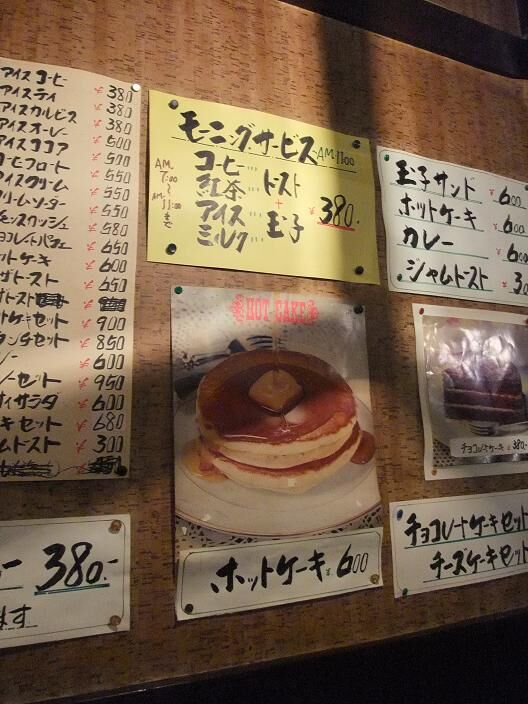 アイスコーヒー ¥380
アイスティ ¥380
アイスカルピス ¥380
アイスオーレー ¥380
アイスココア ¥500
コーヒーフロート ¥500
アイスクリーム ¥550
クリームソーダー ¥550
レモンスカッシュ ¥580
チョコレートパフェ ¥650
ットケーキ ¥600
ザトースト ¥650
トースト
ットケーキセット ¥900
ンタクセット ¥850
¥600
ーセット ¥950
サラダ ¥600
キセット ¥680
ムトースト ¥300
380.-
ます
モーニングサービス AM.11:00
AM.
7:00
〜
AM.
11:00
まで
コーヒー… トースト
紅茶… +
アイス 玉子
ミルク…
¥380.
HOT CAKE
ホットケーキ ¥600
玉子サンド ¥600
ホットケーキ ¥600
カレー ¥600
ジャムトースト ¥300
チョコレートケーキ ¥380.-
チョコレートケーキセット
チーズケーキセット